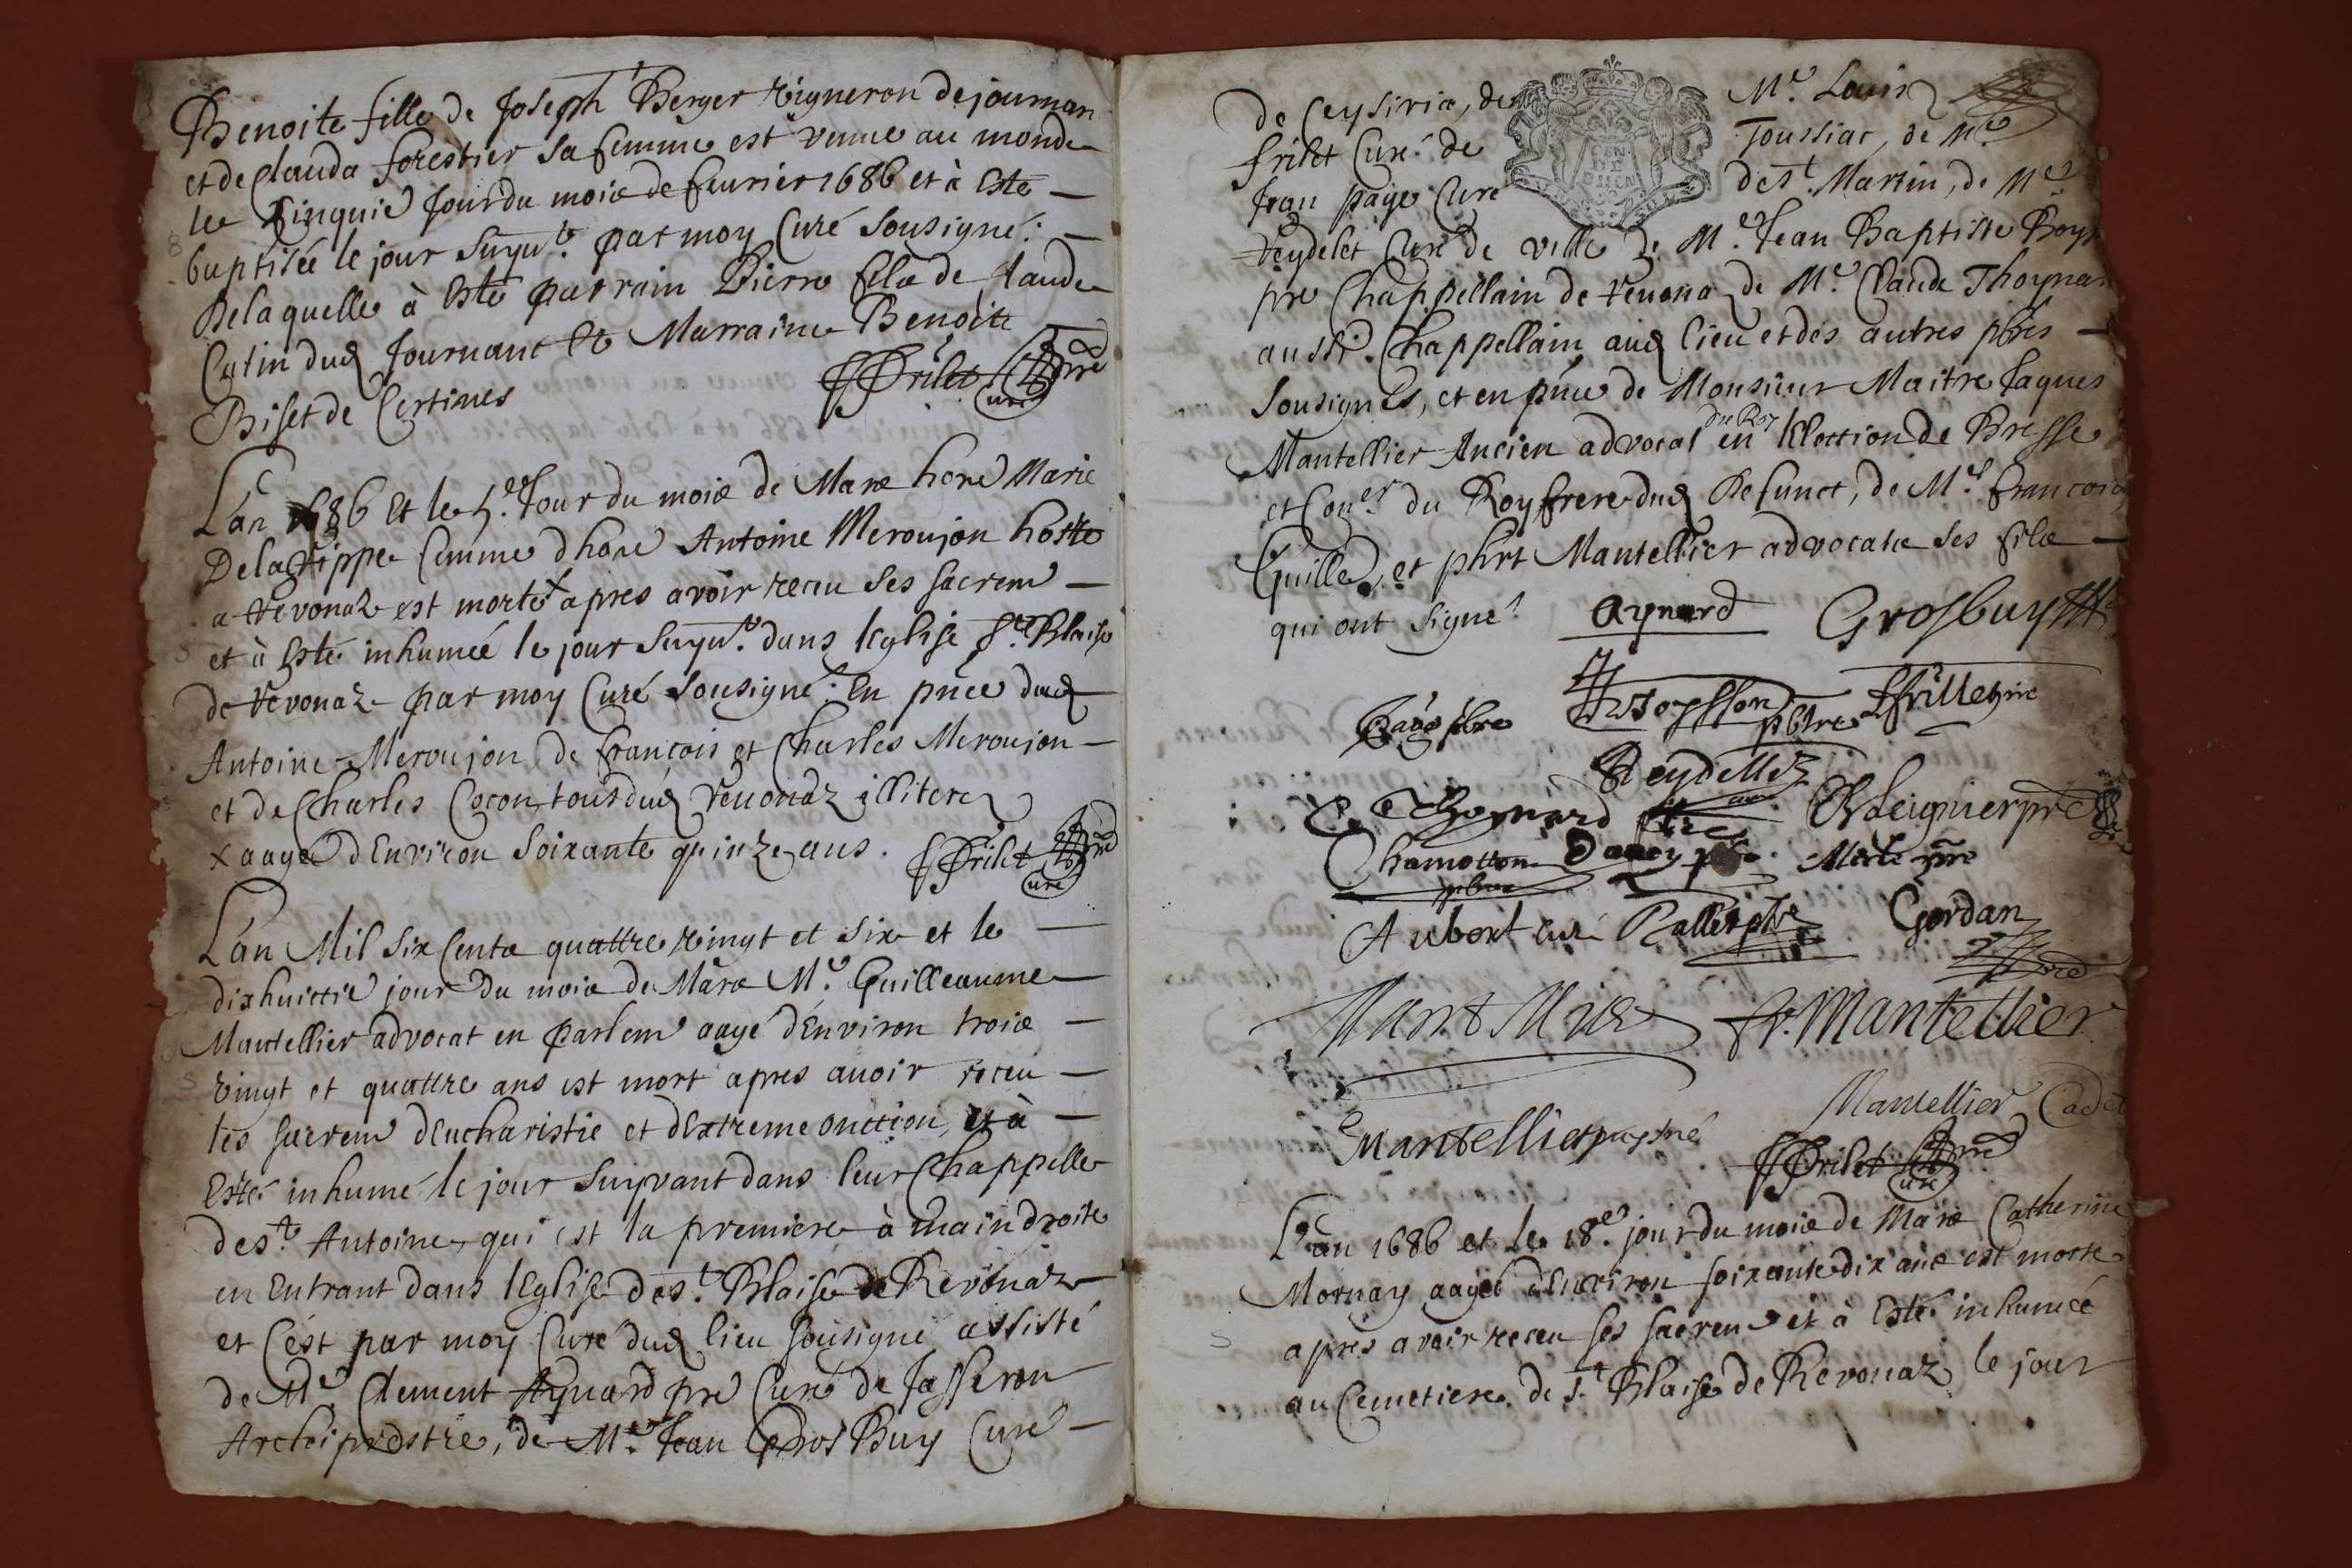 Benoite fille de Joseph Berger vigneron de journan
et de Clauda forestier sa femme est venue au monde
le cinquie Jour du mois de feurier 1686 et à esté
B
baptisée le jour suyvt. par moy Curé sousigné.
De laquelle à esté parrain Pierre fils de Claude
Catin dud Journant et Marraine Benoite
Biset de Certines
FFrilet pre
Curé
L'an 1686 et le 5e. Jour du mois de Mars hone Marie
De la Tippe femme d'hone Antoine Meroujon hoste
a Revonaz est morte x apres avoir receu ses sacrem
S
et à esté inhumée le jour suyvt. dans l'eglise St. Blaise
de Revonaz par moy Curé sousigné. En pnce dud
Antoine Meroujon, de François et Charles Meroujon
et de Charles Cocon tous dud Revonaz illiteres
x aagée d'Environ soixante quinze ans.
FFrilet pre
Curé
L'an Mil six Cents quattre vingt et six et le
dixhuictie jour du mois de Mars Me. Guilleaume
Mantellier advocat en parlem aagé d'Environ trois
S
vingt et quattre ans est mort apres avoir receu
les sacrem d'Eucharistie et d'Extreme onction, et à
Esté inhumé le jour suyvant dans leur Chappelle
de st. Antoine, qui est la premiere à main droite
en Entrant dans l'Eglise de st. Blaise de Revonaz
et C'est par moy Curé dud lieu sousigné assisté
de Me. Clement Aynard pre Curé de Jasseron
Archiprestre, de Me. Jean Gros Buy Curé
de Ceysiria, de Me. Louis
frilet Curé de Toussiac, de Me
Jean page Curé de st. Martin, de Me
Reydelet Curé de ville de Me. Jean Baptiste Boys
pre Chappellain de Revona de Me. Claude Thoynar
aussi Chappellain aud lieu et des autres pbres
sousignés, et en pnce de Monsieur Maitre Jaques
du Roy
Mantellier Ancien advocat en l'Election de Bresse
et Coner du Roy frere dud Defunct, de Me. François
Guille, et phrt Mantellier advocats ses fils
qui ont signé.
Aynard
Grosbuy
Page pbre
pbtre
FFrillet pre
Reydellet
C. Thoynard pre
pre
Chamotton
pbre
pre
Merle pre
Aubert curé
Rallet pbre
Gordan
pre
Mantellier
Fr. Mantellier
Mantellier puysné
Mantellier Cadet
FFrilet pre
Curé
L'an 1686 et le 18e. jour du mois de Mars Catherine
Mornay aagée d'Environ soixante dix ans est morte
S
apres avoir receu ses sacrem et à Esté inhumée
au Cemetiere de st. Blaise de Revonaz le jour